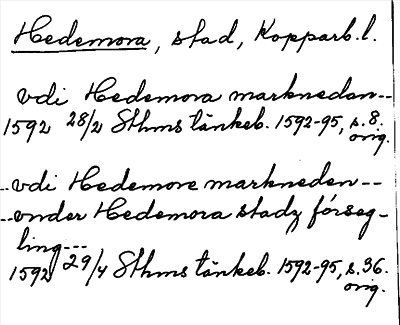 Hedemora, stad, Kopparb.l.
vdi Hedemora marknedan--
1592 28/2 Sthms tänkeb. 1592-95, s.8.
orig.
--vdi Hedemore markneden--
--onder Hedemora stadz förseg-
ling---
1592 29/4 Sthms tänkeb. 1592-95, s.36.
orig.